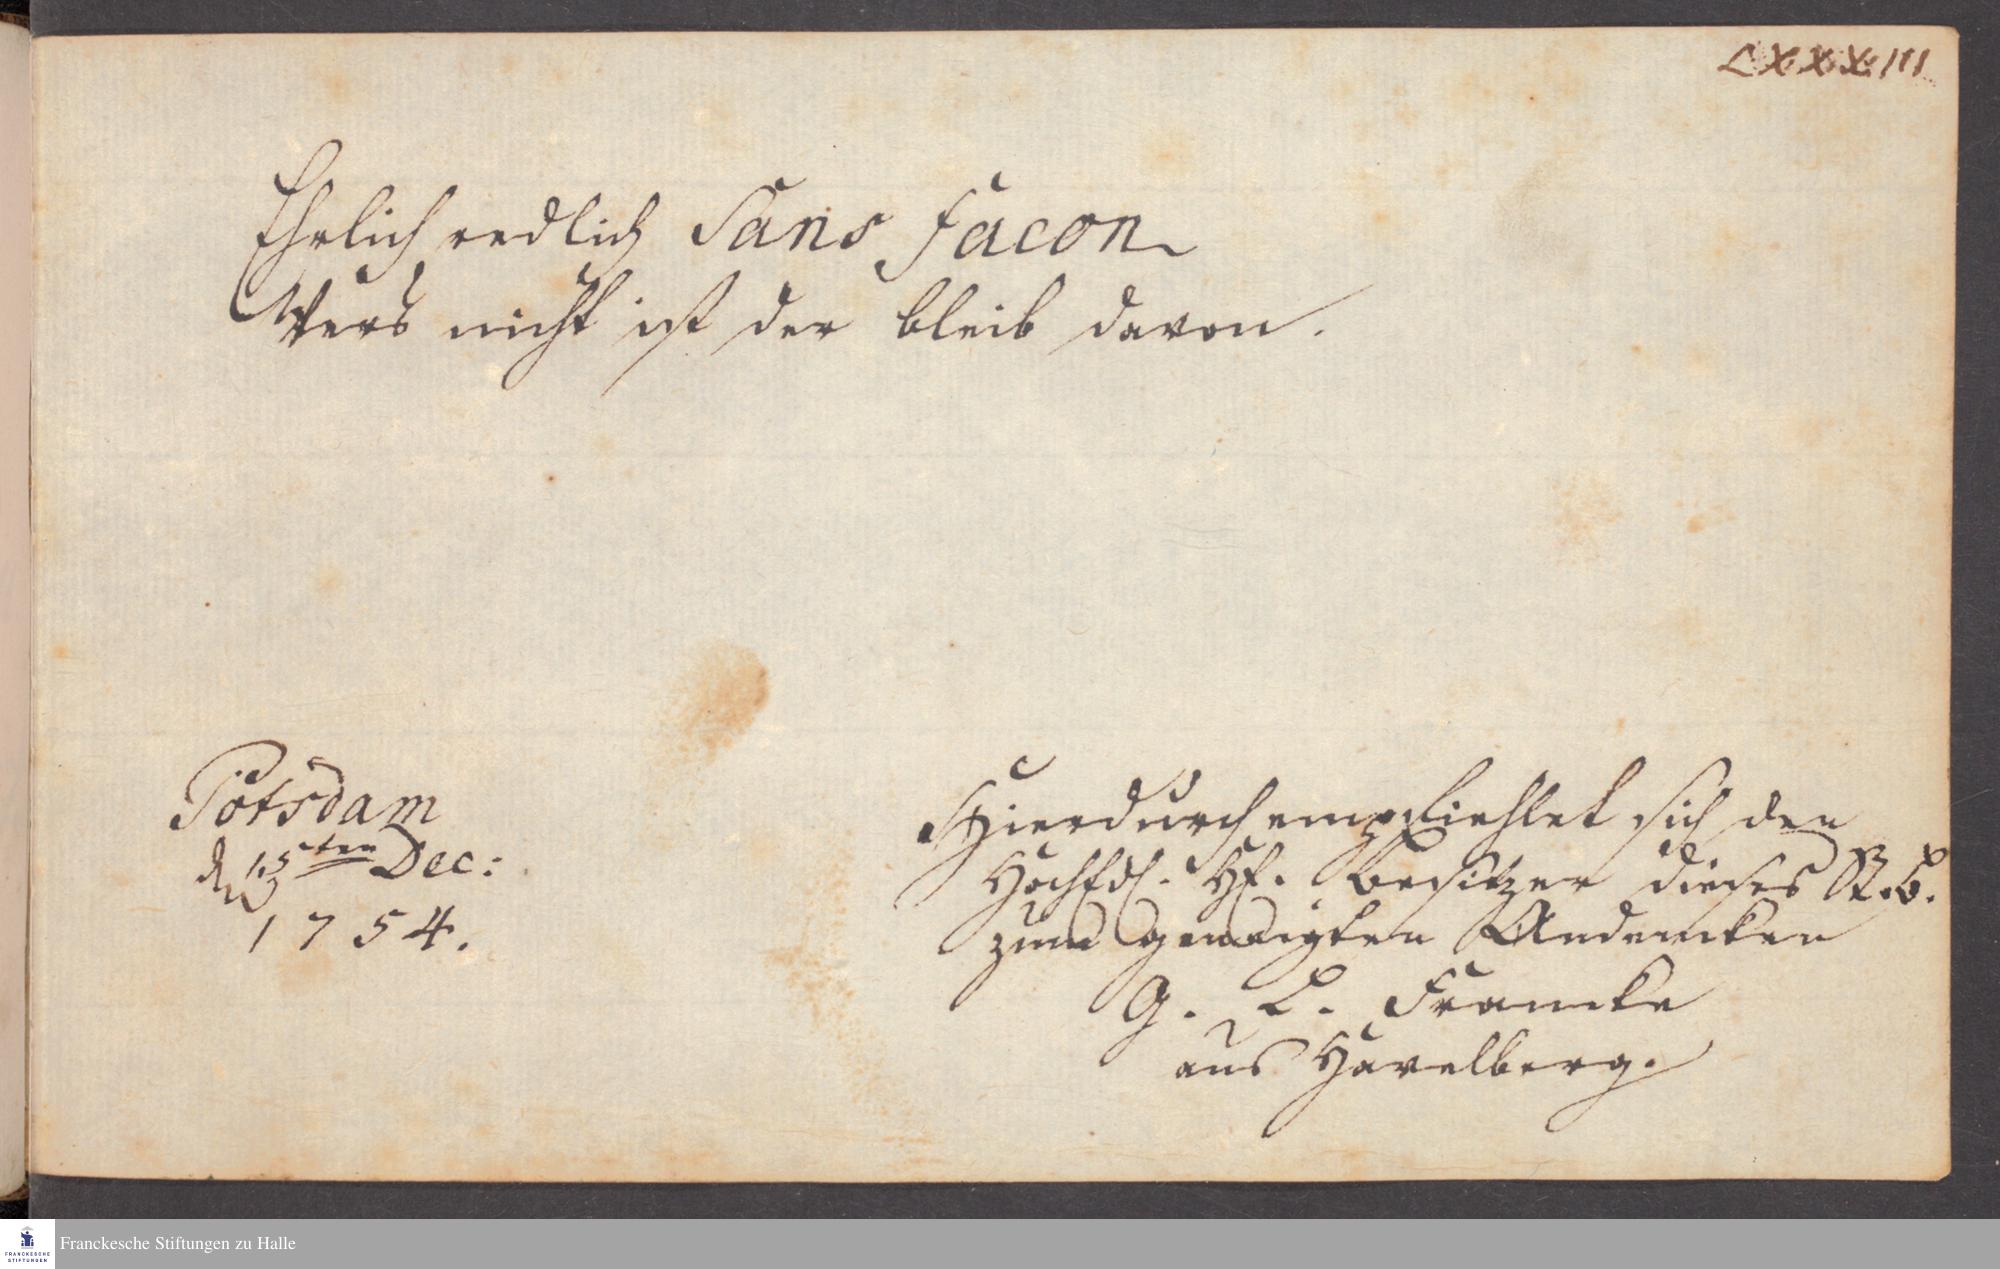 LXXXIII
Ehrlich redlich Sans facon
Wers nicht ist der bleib davon.
Potsdam
d 15ten Dec:
1754.
Hierdurch empfiehlet sich den
Besitzer dieses St. B.
zum geneigten Andencken
G. L. Francke
aus Havelberg.
FRANCKESCHE
STIFTUNGEN
Franckesche Stiftungen zu Halle